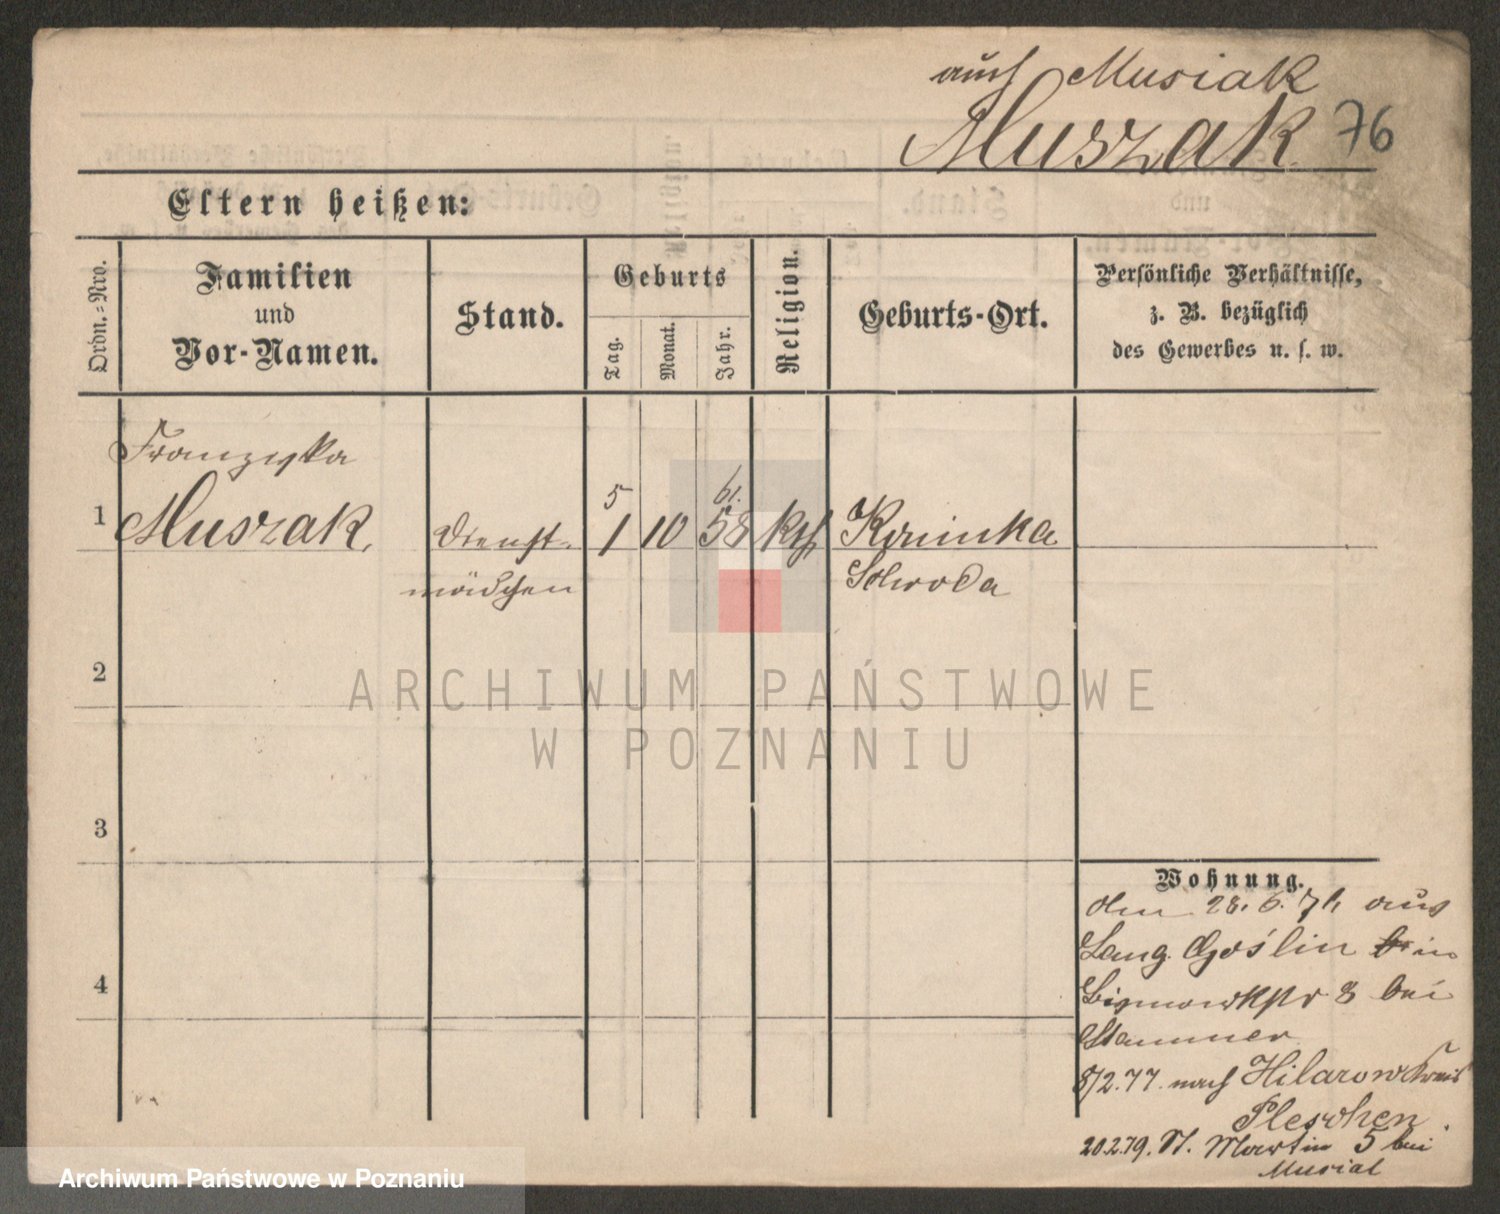 auch Musiak
Muszak. 76
Eltern heißen:
Ordn.=Nro.
Familien
und
Vor-Namen.
Stand.
Geburts
Tag.
Monat.
Jahr.
Religion.
Geburts-Ort.
Persönliche Verhältnisse,
z. B. bezüglich
des Gewerbes u. s. w.
Franziska
5 61.
1 Muszak. Dienst- 1 10 58 kth
mädchen
Schroda
2
3
4
Wohnung.
28. 6. aus
Lang. Goslin in
8 bei
Stammer
8/2.77. nach Hilarow Kreis
Pleschen.
20.2.79. St. Martin 5 bei
Musial
ARCHIWUM PAŃSTWOWE
W POZNANIU
Archiwum Państwowe w Poznaniu